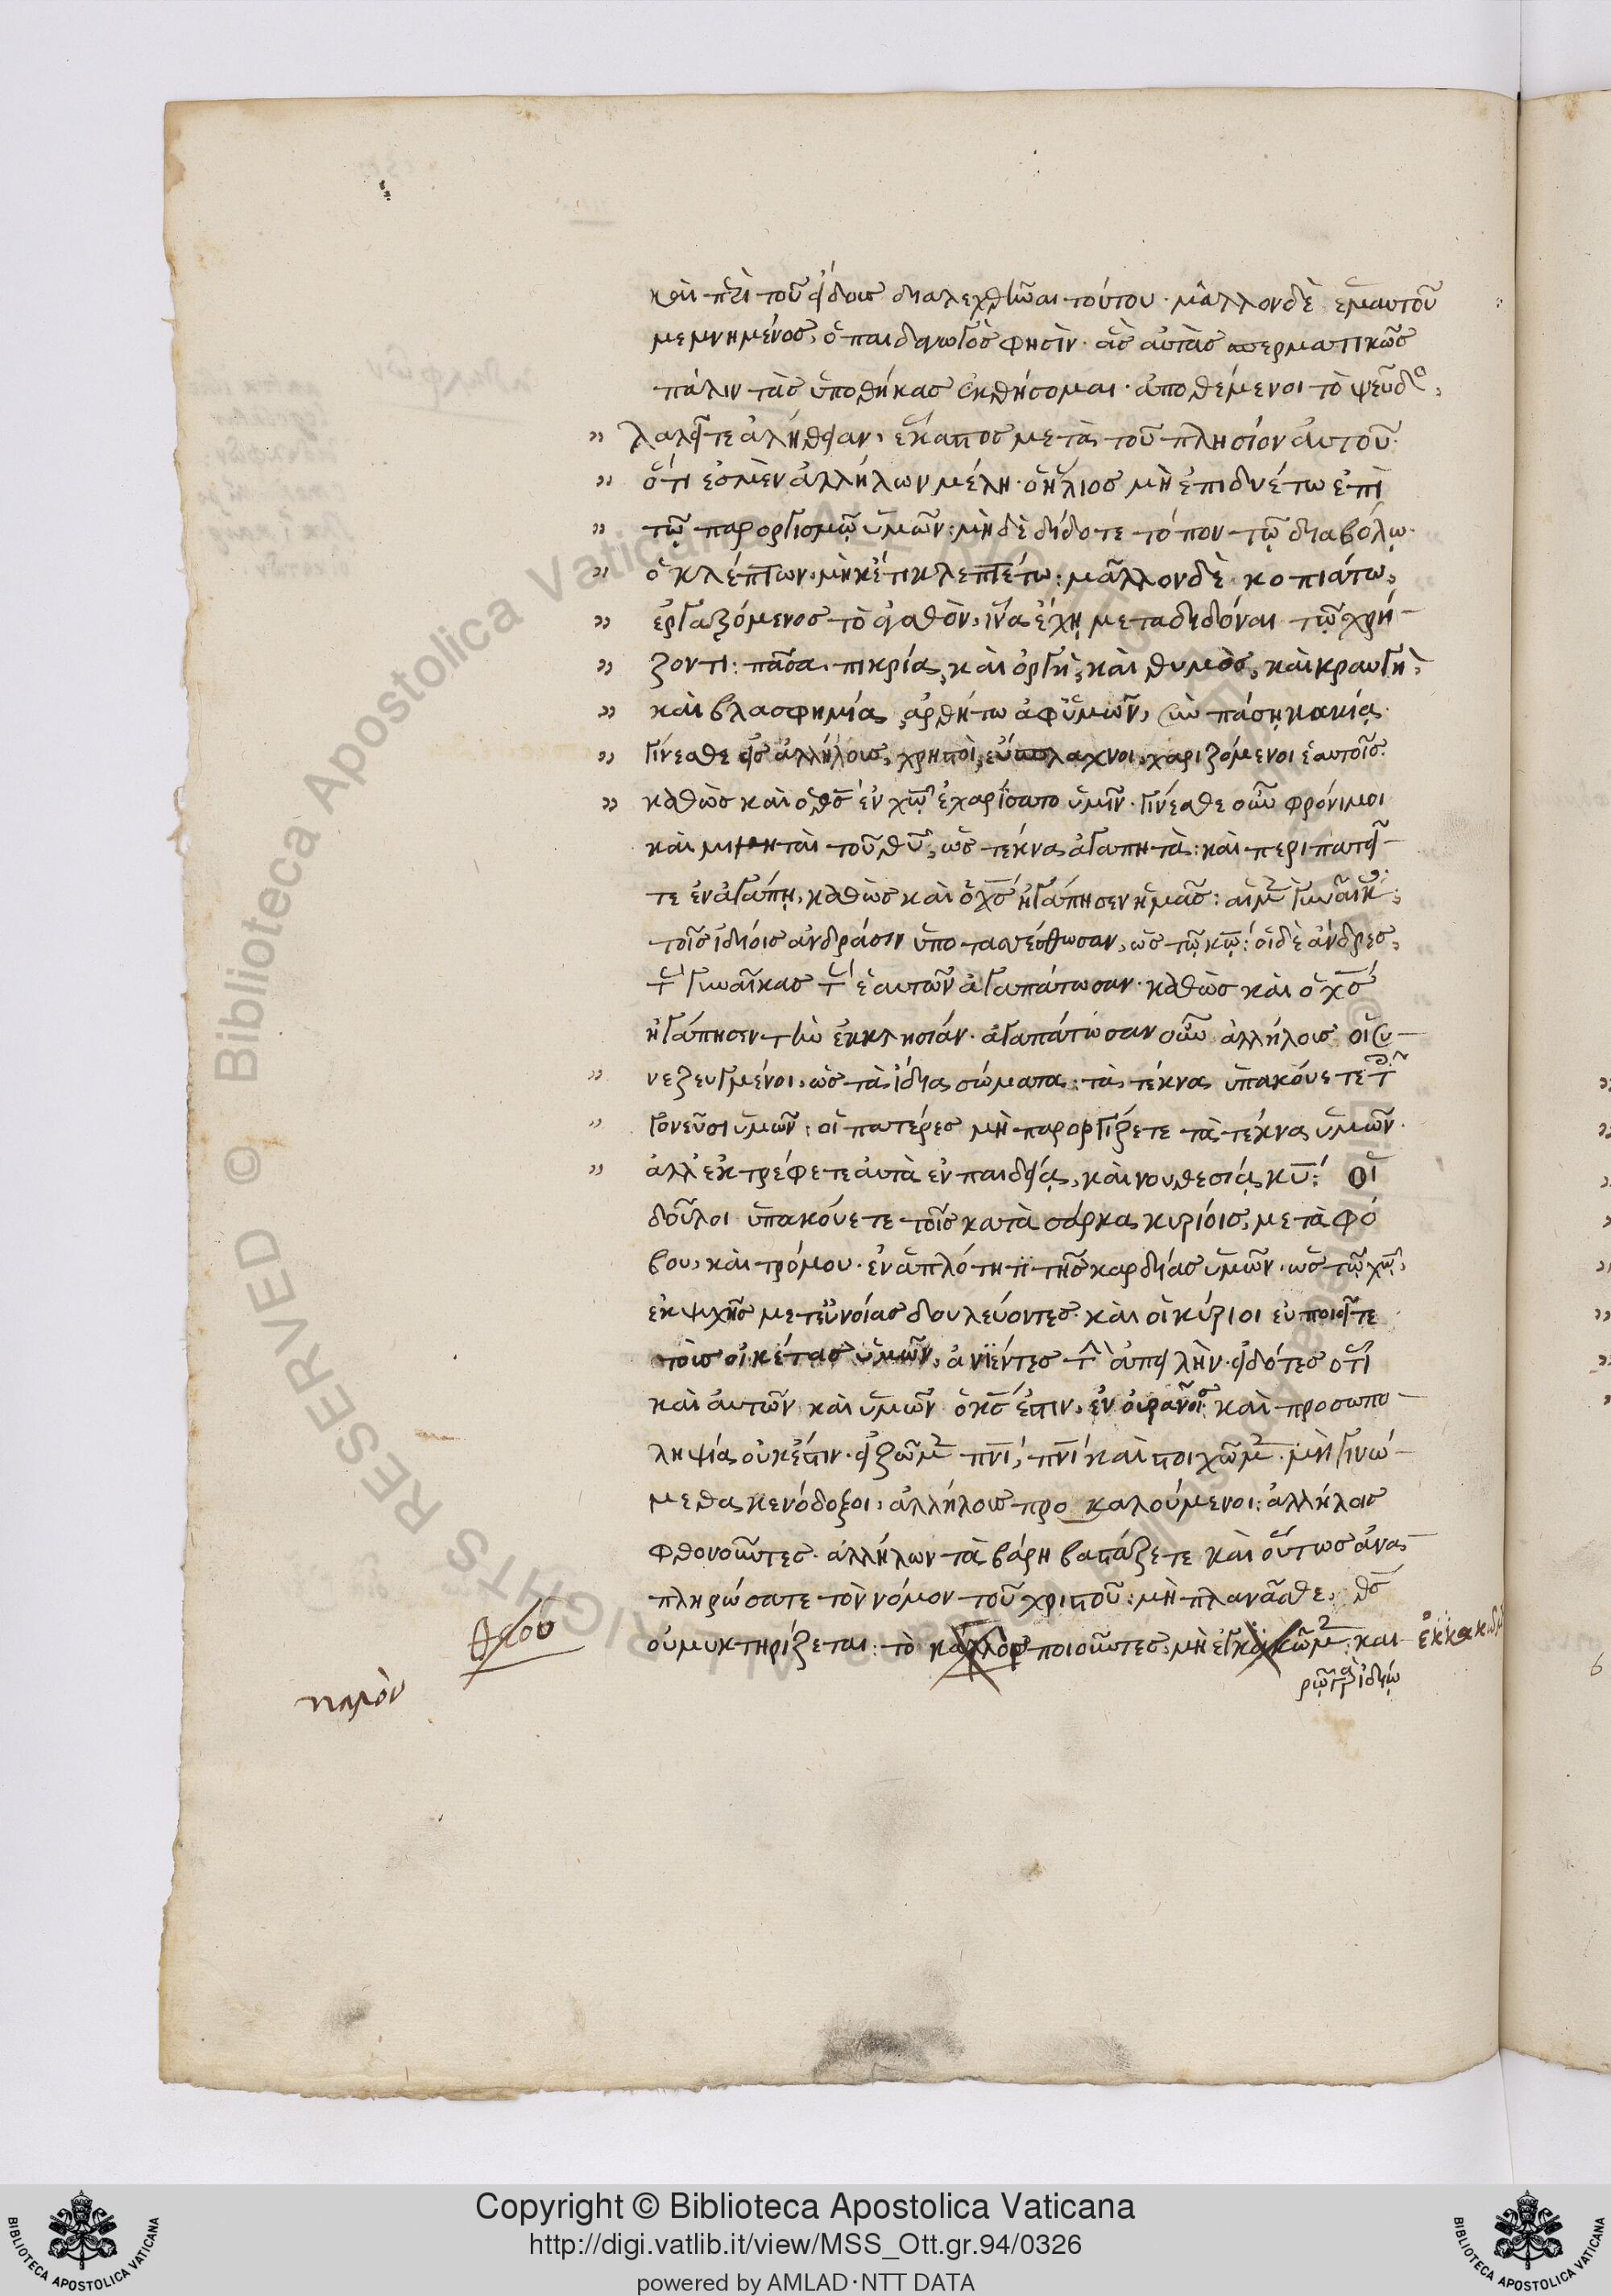 καὶ περὶ τοῦ εἴδους διαλεχθῆναι τούτου· μᾶλλον δὲ ἐμαυτοῦ
μεμνημένος, ὁ παιδαγωγὸς φησὶν· ἃς αὐτὰς σπερματικῶς
πάλιν τὰς ὑποθήκας ἐκθήσομαι· ἀποθέμενοι τὸ ψεῦδο,
" λαλεῖτε ἀλήθειαν, ἕκαστος μετὰ τοῦ πλησίον αὐτοῦ·
" ὅτι ἐσμὲν ἀλλήλων μέλη· ὁ ἥλιος μὴ ἐπιδυέτω ἐπὶ
" τῷ παροργισμῷ ὑμῶν: μὴ δὲ δίδοτε τόπον τῷ διαβόλῳ·
" ὁ κλέπτων, μὴκέτι κλεπτέτω: μᾶλλον δὲ κοπιάτω,
" ἐργαζόμενος τὸ ἀγαθὸν, ἵνα ἔχῃ μεταδιδόναι τῷ χρή-
" ζοντι: πᾶσα πικρία, καὶ ὀργὴ, καὶ θυμὸς, καὶ κραυγὴ,
" καὶ βλασφημία, ἀρθήτω ἀφ' ὑμῶν, σὺν πάσῃ κακίᾳ.
" γίνεσθε εἰς ἀλλήλους, χρηστοὶ, εὔσπλαχνοι, χαριζόμενοι ἑαυτοῖς.
" καθὼς καὶ ὁ θς ἐν χῷ ἐχαρίσατο ὑμῖν· γίνεσθε οὖν φρόνιμοι
καὶ μιμηταὶ τοῦ θυ, ὡς τέκνα ἀγαπητὰ: καὶ περιπατεῖ-
τε ἐν ἀγάπῃ, καθὼς καὶ ὁ χς ἠγάπησεν ἡμᾶς: αἱ μὲν γυναῖκες
τοῖς ἰδίοις ἀνδράσιν ὑποτασσέσθωσαν, ὡς τῷ κῳ: οἱ δὲ ἄνδρες,
τὰς γυναῖκας τὰς ἑαυτῶν ἀγαπάτωσαν· καθὼς καὶ ὁ χς
ἠγάπησεν τὴν ἐκκλησίαν· ἀγαπάτωσαν οὖν ἀλλήλους οἱ συ-
" νεζευγμένοι, ὡς τὰ ἴδια σώματα: τὰ τέκνα ὑπακούετε τοῖς
" γονεῦσι ὑμῶν: οἱ πατέρες μὴ παροργίζετε τὰ τέκνα ὑμῶν·
" ἀλλ' ἐκτρέφετε αὐτὰ ἐν παιδείᾳ, καὶ νουθεσίᾳ κυ: Οἱ
δοῦλοι ὑπακούετε τοῖς κατὰ σάρκα κυρίοις, μετὰ φό
βου, καὶ τρόμου· ἐν ἁπλότητι τῆς καρδίας ὑμῶν· ὡς τῷ χῷ,
ἐκ ψυχῆς μετ' εὐνοίας δουλεύοντες· καὶ οἱ κύριοι εὖ ποιεῖτε
τοὺς οἰκέτας ὑμῶν, ἀνιέντες τὴν ἀπειλὴν· εἰδότες ὅτι
καὶ αὐτῶν καὶ ὑμῶν ὁ κς ἐστιν, ἐν οὐρανοῖς καὶ προσωπο-
ληψία οὐκ ἔστιν· εἰ ζῶμεν πνι, πνι καὶ στοιχῶμεν· μὴ γινώ-
μεθα κενόδοξοι, ἀλλήλους προκαλούμενοι: ἀλλήλοις
φθονοῦντες· ἀλλήλων τὰ βάρη βαστάζετε καὶ οὕτως ἀνα-
πληρώσατε τὸν νόμον τοῦ χριστοῦ: μὴ πλανᾶσθε, θς
οὐ μυκτηρίζεται: τὸ καλὸν ποιοῦντες, μὴ ἐγκακῶμεν: και- ἐκκακῶμ
ρῷ γὰρ ἰδίῳ